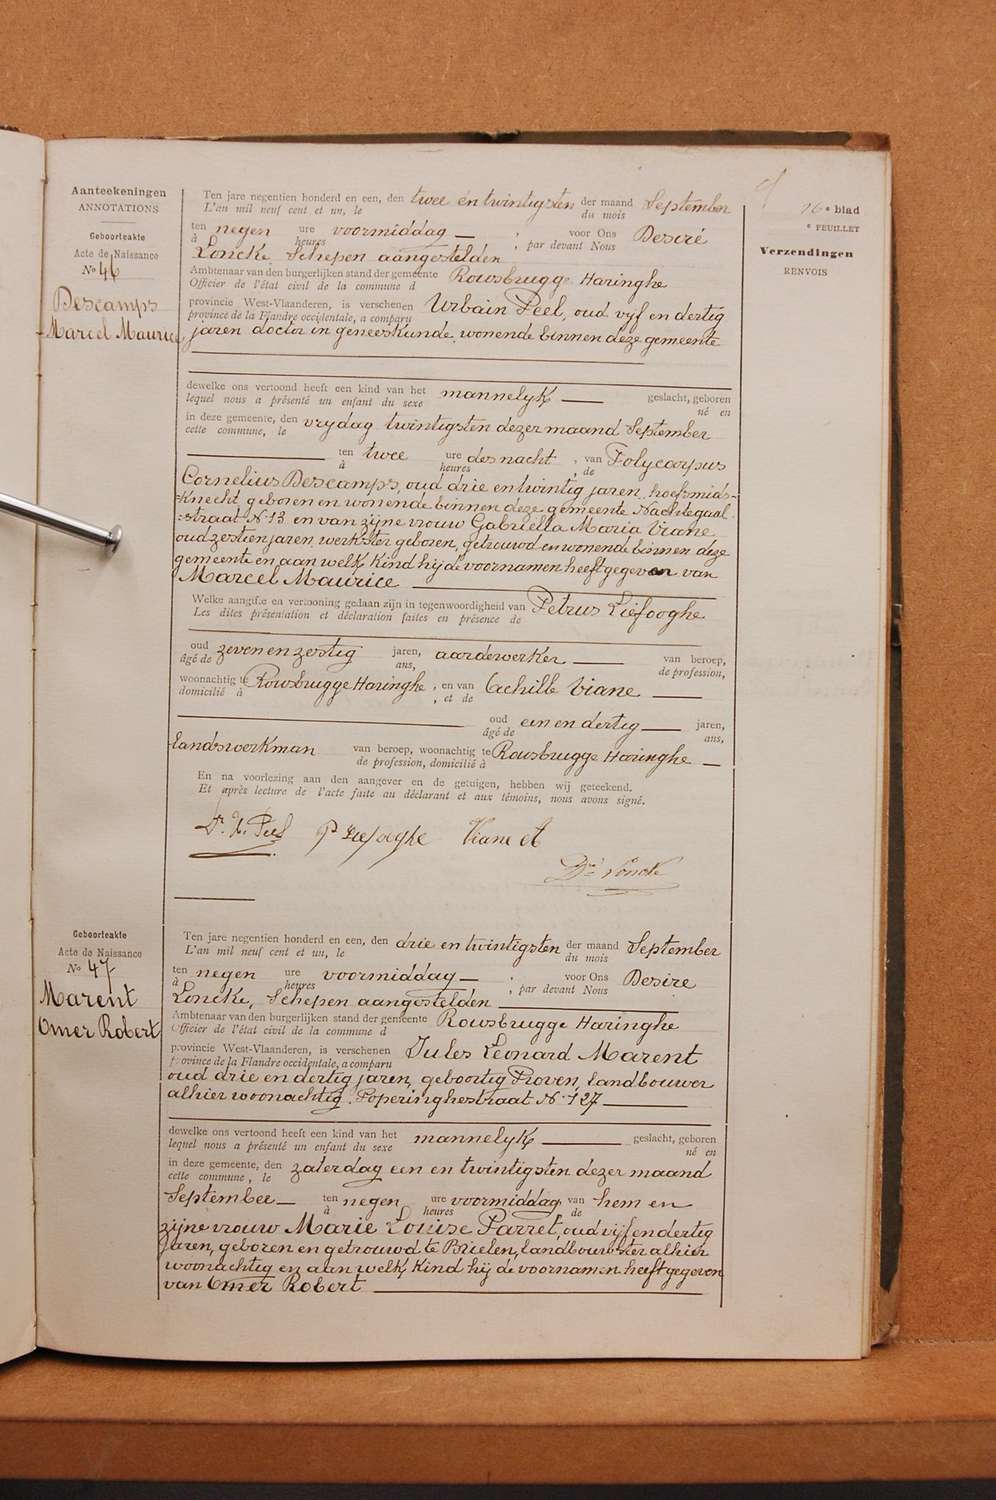 16e blad
e FEUILLET
Verzendingen
RENVOIS
Aanteekeningen
ANNOTATIONS
Geboorteakte
Acte de Naissance
No 46
Descamps
Marcel Maurice
Ten jare negentien honderd en een, den twee en twintigsten der maand September
L'an mil neuf cent et un, le du mois
ten negen ure voormiddag — ; voor Ons Desiré
à heures , par devant Nous
Loncke, Schepen aangestelden
Ambtenaar van den burgerlijken stand der gemeente Rousbrugge Haringhe
Officier de l'état civil de la commune d
provincie West-Vlaanderen, is verschenen Urbain Peel, oud vyf en dertig
province de la Flandre occidentale, a comparu
jaren doctor in geneeskunde, wonende binnen deze gemeente
dewelke ons vertoond heeft een kind van het mannelyk — geslacht, geboren
lequel nous a présenté un enfant du sexe né en
in deze gemeente, den vrydag twintigsten dezer maand September
cette commune, le
ten twee ure des nacht , van Polycarpus
à heures , de
Cornelius Descamps, oud drie en twintig jaren, hoefsmids-
knecht geboren en wonende binnen deze gemeente Nachtegaal-
straat N. 13 en van zijne vrouw Gabriella Maria Viane
oud zestien jaren, werkster geboren, getrouwd en wonende binnen deze
gemeente en aan welk kind hij de voornamen heeft gegeven van
Marcel Maurice
Welke aangifte en vertooning gedaan zijn in tegenwoordigheid van Petrus Liefooghe
Les dites présentation et déclaration faites en présence de
oud zeven en zestig jaren, aardewerker — van beroep,
âgé de ans, de profession,
woonachtig te Rousbrugge Haringhe , en van Achille Viane
domicilié à , et de
oud een en dertig — jaren,
âgé de ans,
landswerkman van beroep, woonachtig te Rousbrugge Haringhe —
de profession, domicilié à
En na voorlezing aan den aangever en de getuigen, hebben wij geteekend.
Et après lecture de l'acte faite au déclarant et aux témoins, nous avons signé.
Dr. U. Peel P Liefooghe Viane A
Dré Loncke
Geboorteakte
Acte de Naissance
No 47
Marent
Omer Robert
Ten jare negentien honderd en een, den drie en twintigsten der maand September
L'an mil neuf cent et un, le du mois
ten negen ure voormiddag — ; voor Ons Desire
à heures , par devant Nous
Loncke, Schepen aangestelden
Ambtenaar van den burgerlijken stand der gemeente Rousbrugge Haringhe
Officier de l'état civil de la commune d
provincie West-Vlaanderen, is verschenen Jules Leonard Marent
province de la Flandre occidentale, a comparu
oud drie en dertig jaren, geboortig Proven, landbouwer
alhier woonachtig, Poperinghestraat N. 127
dewelke ons vertoond heeft een kind van het mannelyk — geslacht, geboren
lequel nous a présenté un enfant du sexe né en
in deze gemeente, den zaterdag een en twintigsten dezer maand
cette commune, le
September — ten negen ure voormiddag, van hem en
à heures de
zijne vrouw Marie Louise Parret, oud vijf en dertig
jaren, geboren en getrouwd te Brielen, landbouwster alhier
woonachtig en aan welk kind hij de voornamen heeft gegeven
van Omer Robert